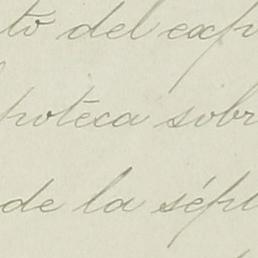 to del exp
poteca sobr
de la sépt